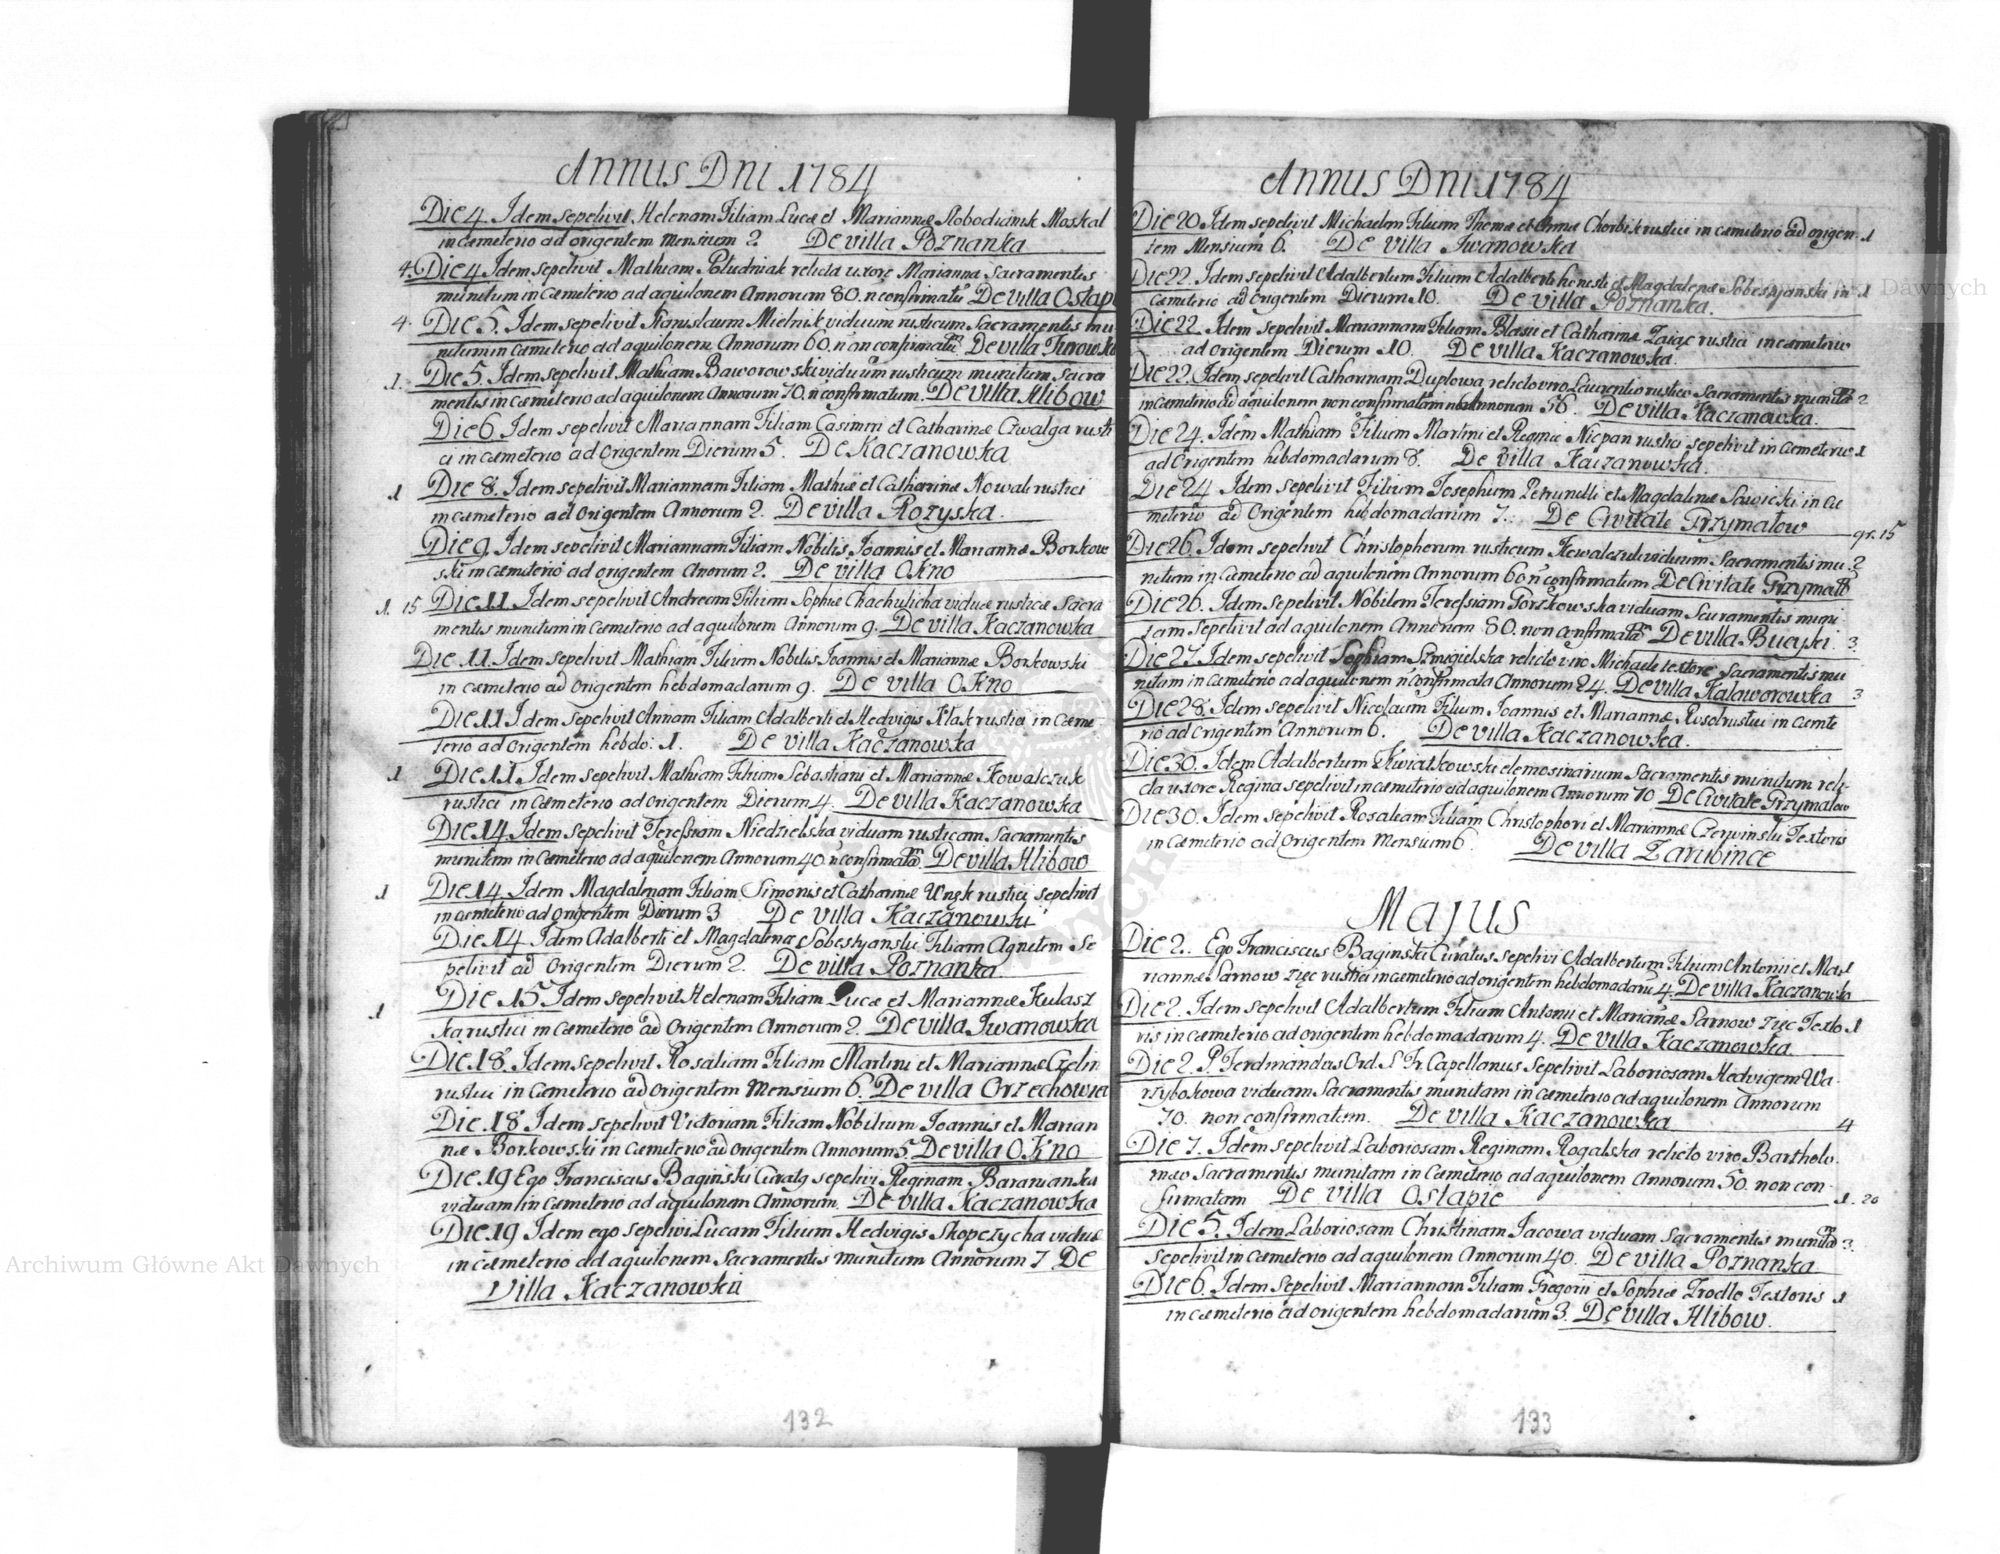 Annus Dni 1784
Die 4. Idem sepelivit Helenam Filiam Lucæ et Mariannæ Slobodianik Moskal
in cæmeterio ad origentem Mensium 2. De villa Poznanka
4. Die 4 Idem sepelivit Mathiam Południak relicta uxore Marianna Sacramentis
munitum in Cæmeterio ad aquilonem Annorum 80. n confirmatū De villa Ostap
4. Die 5. Idem sepelivit Stanislaum Mielnik viduum rusticum Sacramentis mu
nitum in Cæmeterio ad aquilonem Annorum 60. non confirmatū De villa Turowka
1. Die 5. Idem sepelivit Mathiam Baworowski viduum rusticum munitum Sacra
mentis in Cæmeterio ad aquilonem Annorum 70. n confirmatum. De villa Hlibow
Die 6 Idem sepelivit Mariannam Filiam Casimiri et Catharinæ Cwalga rusti
ci in cæmeterio ad Origentem Dierum 5. De Kaczanowka
1 Die 8. Idem sepelivit Mariannam Filiam Mathiæ et Catharinæ Nowak rustici
in cæmeterio ad Origentem Annorum 2. De villa Rozyska.
Die 9. Idem sepelivit Mariannam Filiam Nobilis Joannis et Mariannæ Borkow
ski in cæmeterio ad origentem Anorum 2. De villa OKno
1. 15 Die 11. Idem sepelivit Andream Filium Sophiæ Chachulicha viduæ rusticæ Sacra
mentis munitum in cæmeterio ad aquilonem Annorum 9. De villa Kaczanowka
Die 11. Idem sepelivit Mathiam Filium Nobilis Joannis et Mariannæ Borkowski
in cæmeterio ad Origentem hebdomadarum 9. De villa OKno
Die 11 Idem sepelivit Annam Filiam Adalberti et Hedvigis Ktak rustici in Cæme-
terio ad Origentem hebdo: 1. De villa Kaczanowka
1 Die 11. Idem sepelivit Mathiam Filium Sebastiani et Mariannæ Kowalczuk
rustici in Cæmeterio ad origentem Dierum 4. De villa Kaczanowka
Die 14 Idem sepelivit Teressiam Niedzielska viduam rusticam Sacramentis
munitam in Cæmeterio ad aquilonem Annorum 40 n confirmatā. De villa Hlibow
1 Die 14 Idem Magdalenam Filiam Simonis et Catharinæ rustici sepelivit
in cæmeterio ad Origentem Dierum 3 De villa Kaczanowski
Die 14 Idem Adalberti et Magdalenæ Sobestyanski Filiam Agnetem Se
pelivit ad Origentem Dierum 2. De villa Poznanka
1 Die 15 Idem sepelivit Helenam Filiam Lucæ et Mariannæ Kulasz
ka rustici in Cæmeterio ad Origentem Annorum 2. De villa Iwanowka
Die 18. Idem sepelivit Rosaliam Filiam Martini et Mariannæ
rustici in Cæmeterio ad Origentem Mensium 6. De villa Orzechowiec
Die 18 Idem sepelivit Victoriam Filiam Nobilium Joannis et Marian
næ Borkowski in Cæmeterio ad origentem Annorum 5. De villa OKno
Die 19 Ego Franciscus Baginski Curatg sepelivi Reginam Baranianka
viduam in Cæmeterio ad aquilonem Annorum. De villa Kaczanowka
Die 19 Idem ego sepelivi Lucam Filium Hedvigis Skopczycha viduæ
in cæmeterio ad aquilonem Sacramentis munitum Annorum 7 De
Villa Kaczanowka
132
Annus Dni 1784
Die 20. Idem sepelivit Michaelem Filium Thomæ et Annæ Chorbik rustici in cæmeterio ad origen- 1
tem Mensium 6. De villa Iwanowka
Die 22. Idem sepelivit Adalbertum Filium Adalberti honesti et Magdalenæ Sobestyanski in 1
Cæmeterio ad Origentem Dierum 10. De villa Poznanka.
Die 22. Idem sepelivit Mariannam Filiam Blasii et Catharinæ Zaiąc rustici in cæmeterio
ad origentem Dierum 10. De villa Kaczanowka.
Die 22. Idem sepelivit Catharinam Duplowa, relicto viro Laurentio rustico Sacramentis munitā 2
in Cæmeterio ad aquilonem non confirmatam Annorum 56. De villa Kaczanowka.
Die 24. Idem Mathiam Filium Martini et Reginæ Niepan rustici sepelivit in Cæmeterio 1
ad Origentem hebdomadarum 8. De villa Kaczanowka.
Die 24 Idem sepelivit Filium Josephum Petrunelli et Magdalenæ Sawicki in Cæ
meterio ad Origentem hebdomadarum 7. De Civitate Grzymałow gr. 15
Die 26. Idem sepelivit Christophorum rusticum Kowalczuk viduum Sacramentis mu- 2
nitum in Cæmeterio ad aquilonem Annorum 60 n confirmatum De Civitate Grzymał
Die 26. Idem Sepelivit Nobilem Teressiam Gorzkowska viduam Sacramentis muni-
tam Sepelivit ad aquilonem Annorum 80. non confirmatā De villa Bucyki. 3
Die 27. Idem sepelivit Sophiam Szmigielska relicto viro Michaele textore Sacramentis mu
nitam in Cæmeterio ad aquilonem n confirmata Annorum 24. De villa Kalaworowka 3
Die 28. Idem sepelivit Nicolaum Filium Joannis et Mariannæ Rusol rustici in Cæmete
rio ad Origentem Annorum 6. De villa Kaczanowka.
Die 30. Idem Adalbertum Kwiatkowski elemosinarium Sacramentis munitum reli-
cta uxore Regina sepelivit in cæmeterio ad aquilonem Annorum 70 De Civitate Grzymałow
Die 30. Idem sepelivit Rosaleam Filiam Christophori et Mariannæ Czerwinski Textoris
in Cæmeterio ad Origentem Mensium 6. De villa Zarubince
Majus
Die 2. Ego Franciscus Baginski Curatus sepelivi Adalbertum Filium Antonii et Mar
riannæ Sarnow Zięc rustici in cæmeterio ad origentem hebdomadaru 4. De villa Kaczanowka
Die 2. Idem sepelivit Adalbertum Filium Antonii et Marianæ Sarnow Zięc Texto 1
ris in cæmeterio ad origentem hebdomadarum 4. De villa Kaczanowka.
Die 2. P. Ferdinandus Ord. S. Fr. Capellanus Sepelivit Laboriosam Hedvigem Wa-
rzybokowa viduam Sacramentis munitam in Cæmeterio ad aquilonem Annorum
70. non confirmatam. De villa Kaczanowka 4
Die 7. Idem sepelivit Laboriosam Reginam Rogalska relicto viro Bartholo-
mæo Sacramentis munitam in Cæmeterio ad aquilonem Annorum 50. non con-
firmatam De villa Ostapie 1. 20
Die 5. Idem Laboriosam Christinam Jacowa viduam Sacramentis munitā 3.
sepelivit in Cæmeterio ad aquilonem Annorum 40. De villa Poznanka
Die 6. Idem Sepelivit Mariannam Filiam Gregorii et Sophiæ Zrodlo Textoris 1
in Cæmeterio ad origentem hebdomadarum 3. De villa Hlibow.
133
Archiwum Główne Akt Dawnych